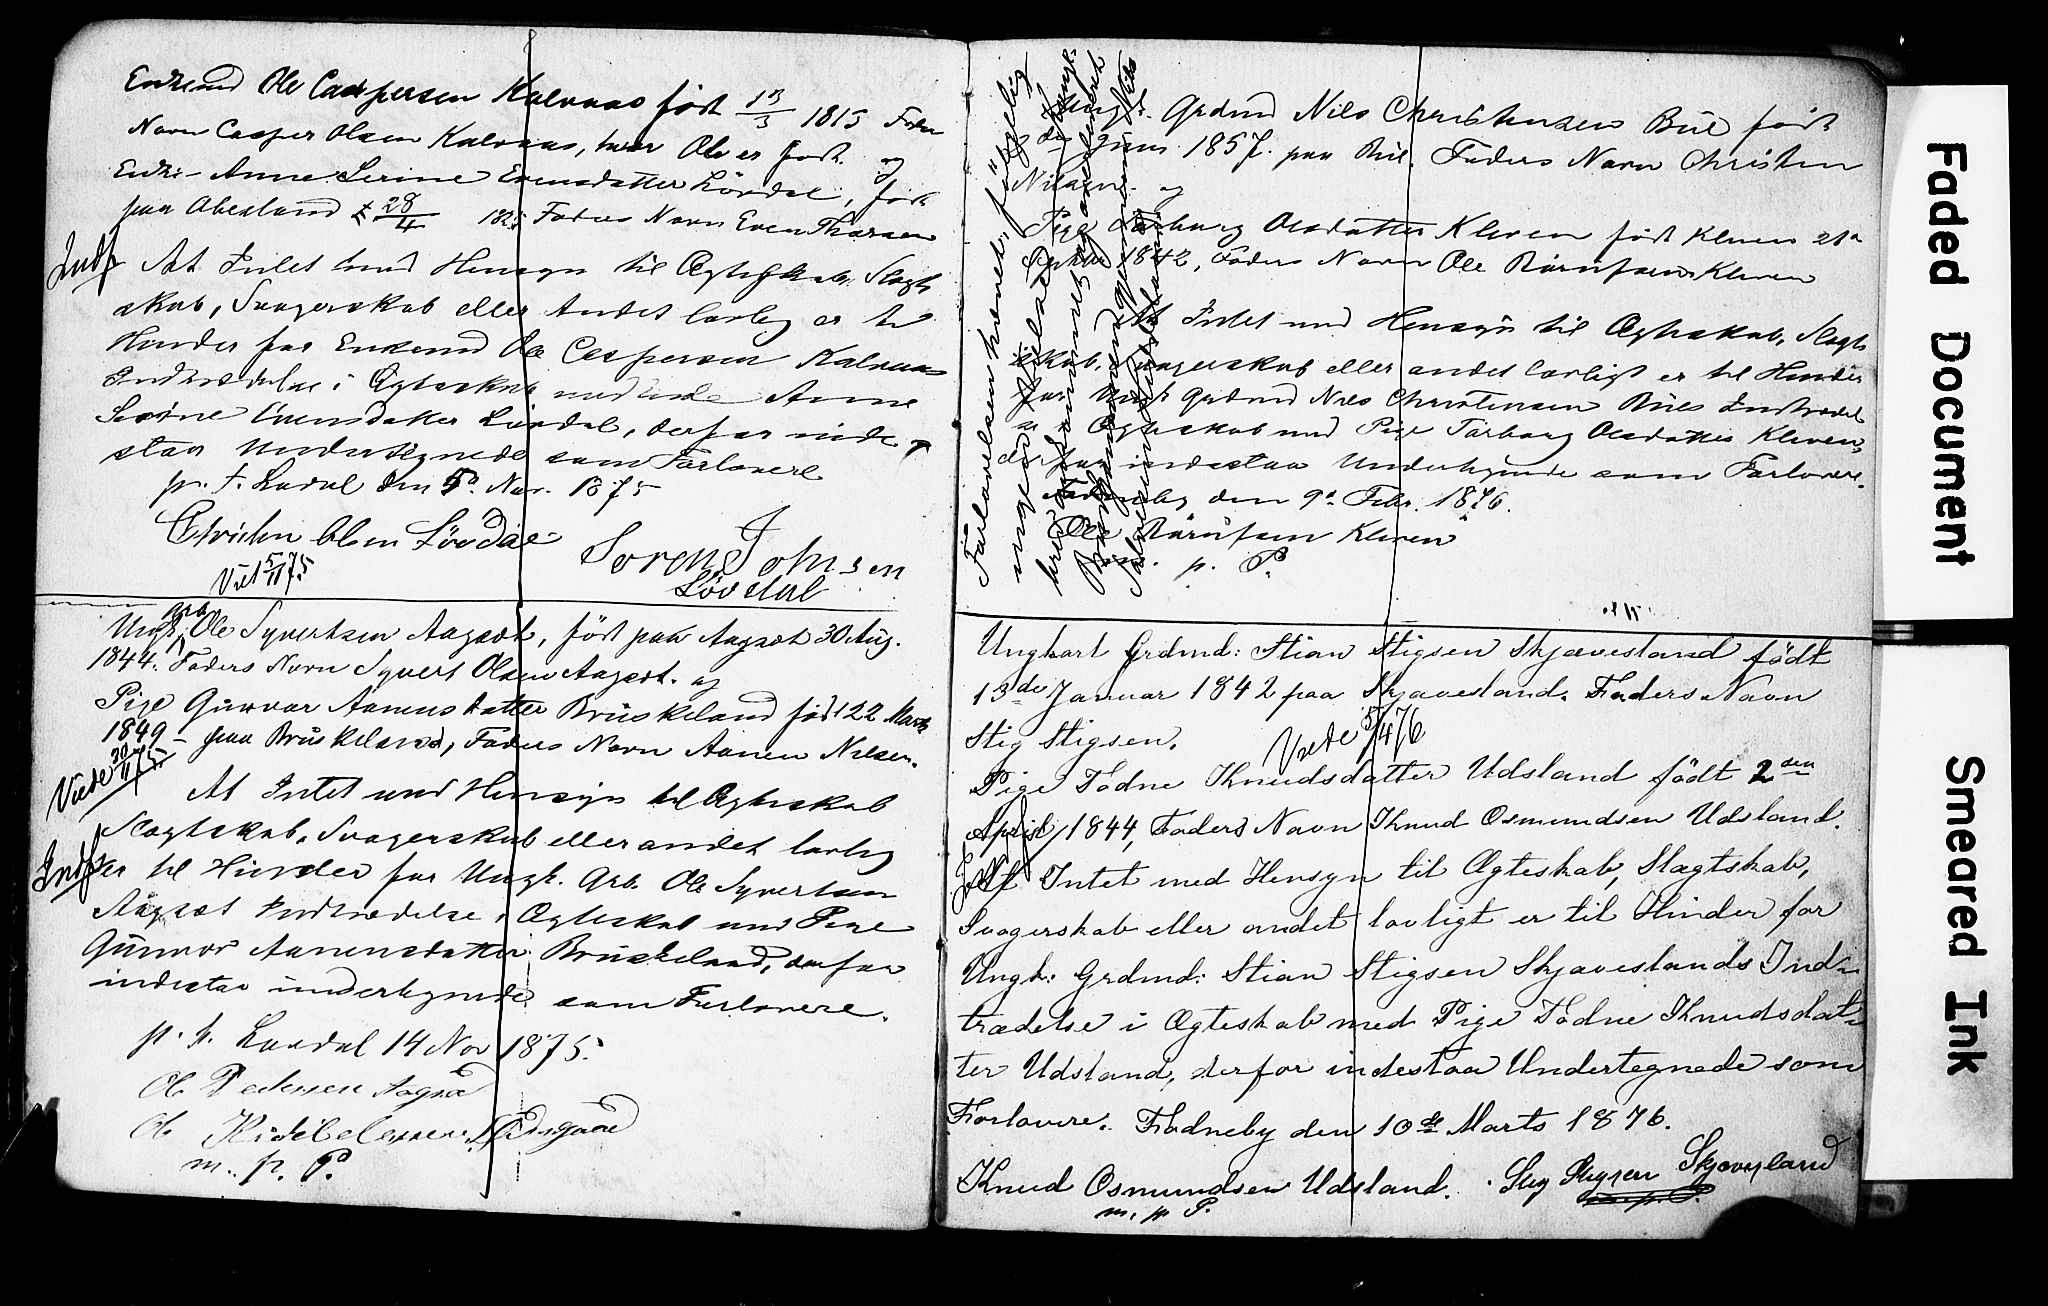 Enkemd Ole Caspersen Kalvaas født 13/3 1815 Faders
Navn Casper Olsen Kalvaas, hvor Ole er født. og
Enke - Anne Serine Evensdatter Lövdal, født
paa Abesland 28/4 1825 Faders Navn Even Thorsen
Indf
At Intet med Hensyn til Ægteskab, Slægt
skab, Svogerskab eller Andet lovlig er til
Hinder for Enkemd Ole Caspersen Kalvaas
Indtrædelse i Ægteskab med Enke Anne
Serine Evensdatter Lövdal, derfor inde
staa Undertegnede som Forlovere
p. t. Laudal den 5. Nov. 1875
Christen Olsen Lövdal
Soren Johnsen
Lövdal
Viet 5/11 75
Ungk. Grb. Ole Syvertsen Aagsæt, født paa Aagsæt 30 Aug.
1844. Faders Navn Syvert Olsen Aagsæt. og
Pige Gunvor Aanensdatter Brüskeland født 22 Marts
1849 - paa Brüskeland, Faders Navn Aanen Nilsen.
Viede 30/11 75.
At Intet med Hensyn til Ægteskab
Slægtskab, Svogerskab eller andet lovlig
Indf
er til Hinder for Ungk. Grb. Ole Syvertsen
Aagsæt Indtrædelse i Ægteskab med Pige
Gunvor Aanensdatter Brüskeland, derfor
indestaa undertegnede som Forlovere.
p. t. Laudal 14 Nov 1875.
Ole Pedersen Aagsæt
Ole
m. p. P.
Forlovelsen hævet, følgelig
Ungk. Grdmd Nils Christensen Büe født
Juni 1857. paa Büe. Faders Navn Christen
Nilsen. og
Pige Torborg Olsdatter Kleven født Kleven 21de
Septbr 1842, Faders Navn Ole Kleven
At Intet med Hensyn til Ægteskab, Slægt
skab, Svogerskab eller andet lovligt er til Hinder
for Ungk Grdmd Nils Christensen Büe's Indtrædelse
i Ægteskab med Pige Torborg Olsdatter Kleven,
derfor indestaa Undertegnede som Forlovere.
den 9de Febr. 1876.
Ole Kleven
p. P.
Ungkarl Grdmd: Stian Stigsen Skjævesland født
13de Januar 1842 paa Skjævesland. Faders Navn
Stig Stigsen.
Viede 5/4 76
Pige Tødne Knudsdatter Udsland født 2den
April 1844, Faders Navn Knud Osmundsen Udsland.
Indf
At Intet med Hensyn til Ægteskab, Slægtskab,
Svogerskab eller andet lovligt er til Hinder for
Ungk: Grdmd: Stian Stigsen Skjæveslands Ind-
trædelse i Ægteskab med Pige Tødne Knudsdat-
ter Udsland, derfor indestaa Undertegnede som
Forlovere. Fodneby den 10de Marts 1876.
Knud Osmundsen Udsland.
m. p. P.
Stig Stigsen Skjævesland
m. p. P.
Faded Document
Smeared Ink